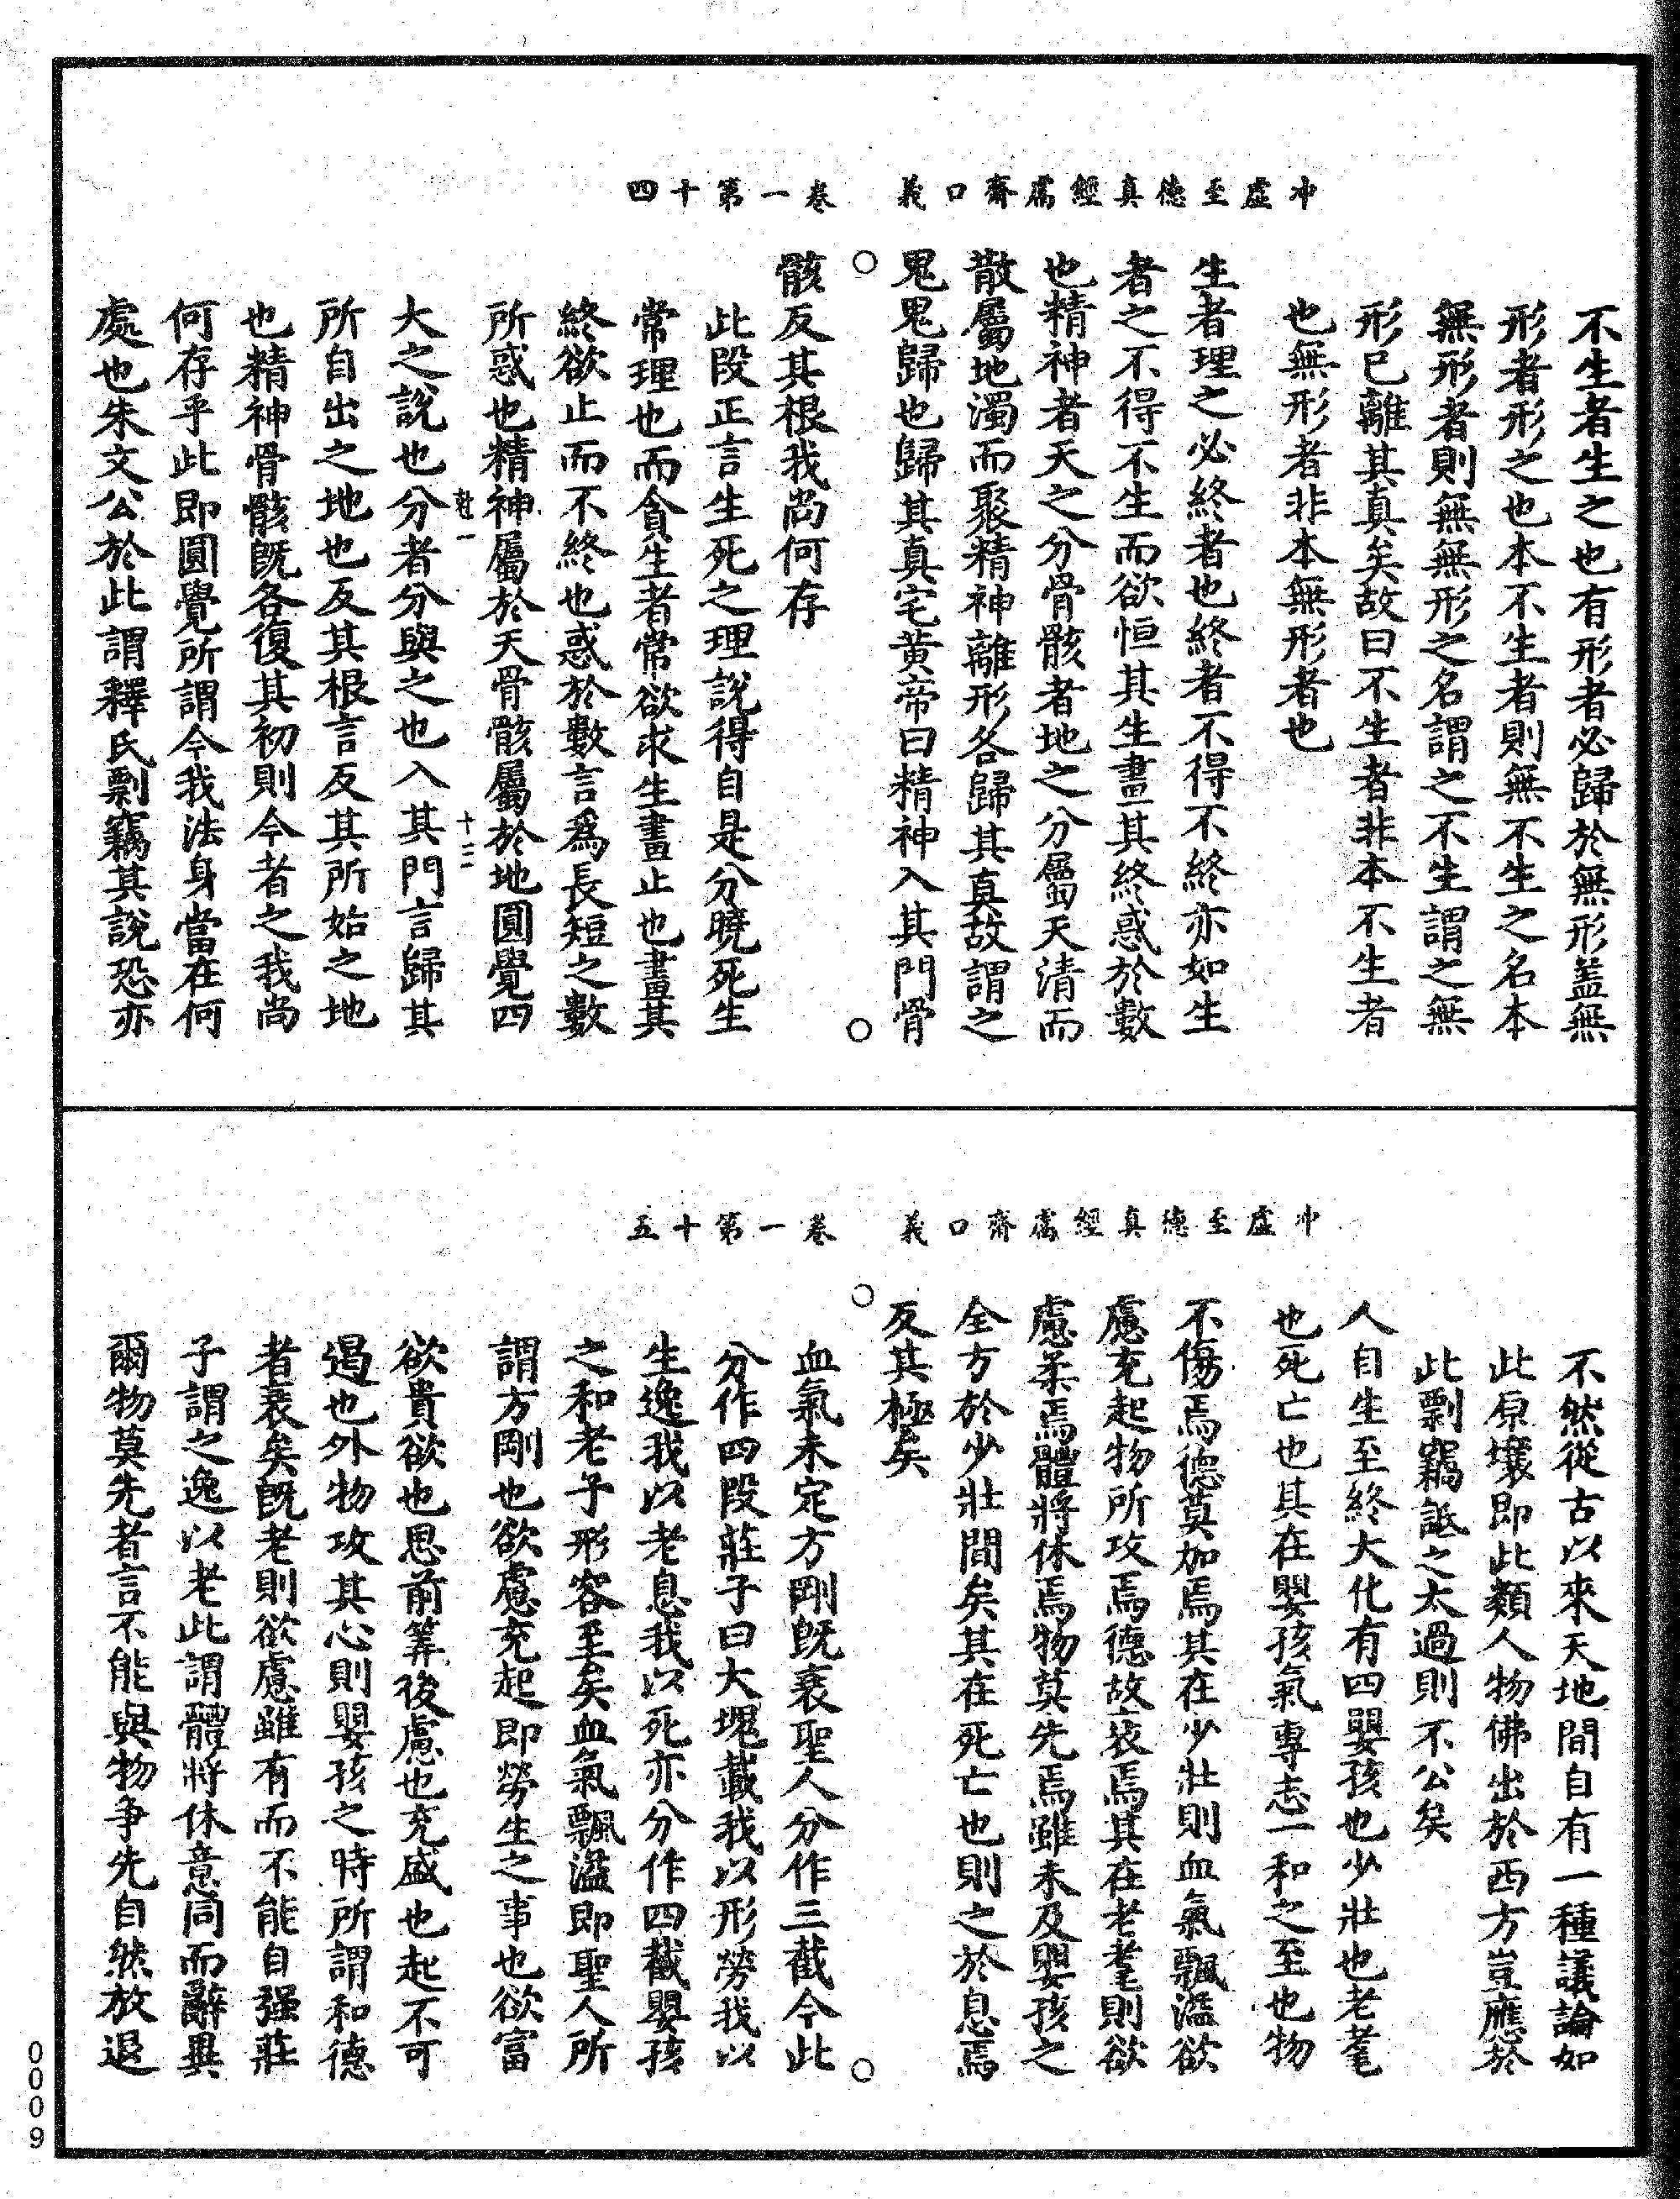 冲虛至德真經鬳齋口義　卷一第十四
不生者生之也有形者必歸於無形蓋無
形者形之也本不生者則無不生之名本
無形者則無無形之名謂之不生謂之無
形已離其真矣故曰不生者非本不生者
也無形者非本無形者也
生者理之必終者也終者不得不終亦如生
者之不得不生而欲恒其生畫其終惑於數
也精神者天之分骨骸者地之分屬天清而
散屬地濁而聚精神離形各歸其真故謂之
鬼鬼歸也歸其真宅黃帝曰精神入其門骨
○　○
骸反其根我尚何存
此段正言生死之理說得自是分曉死生
常理也而貪生者常欲求生畫止也畫其
終欲止而不終也惑於數言爲長短之數
所惑也精神屬於天骨骸屬於地圓覺四
十三
大之說也分者分與之也入其門言歸其
所自出之地也反其根言反其所始之地
也精神骨骸既各復其初則今者之我尚
何存乎此即圓覺所謂今我法身當在何
處也朱文公於此謂釋氏剽竊其說恐亦
冲虛至德真經鬳齋口義　卷一第十五
不然從古以來天地間自有一種議論如
此原壤即此類人物佛出於西方豈應於
此剽竊詆之太過則不公矣
人自生至終大化有四嬰孩也少壯也老耄
也死亡也其在嬰孩氣專志一和之至也物
不傷焉德莫加焉其在少壯則血氣飄溢欲
慮充起物所攻焉德故衰焉其在老耄則欲
慮柔焉體將休焉物莫先焉雖未及嬰孩之
全方於少壯間矣其在死亡也則之於息焉
反其極矣
○　○
血氣未定方剛既衰聖人分作三截今此
分作四段莊子曰大塊載我以形勞我以
生逸我以老息我以死亦分作四截嬰孩
之和老子形容至矣血氣飄溢即聖人所
謂方剛也欲慮充起即勞生之事也欲富
欲貴欲也思前筭後慮也充盛也起不可
遏也外物攻其心則嬰孩之時所謂和德
者衰矣既老則欲慮雖有而不能自强莊
子謂之逸以老此謂體將休意同而辭異
爾物莫先者言不能與物爭先自然放退
0009